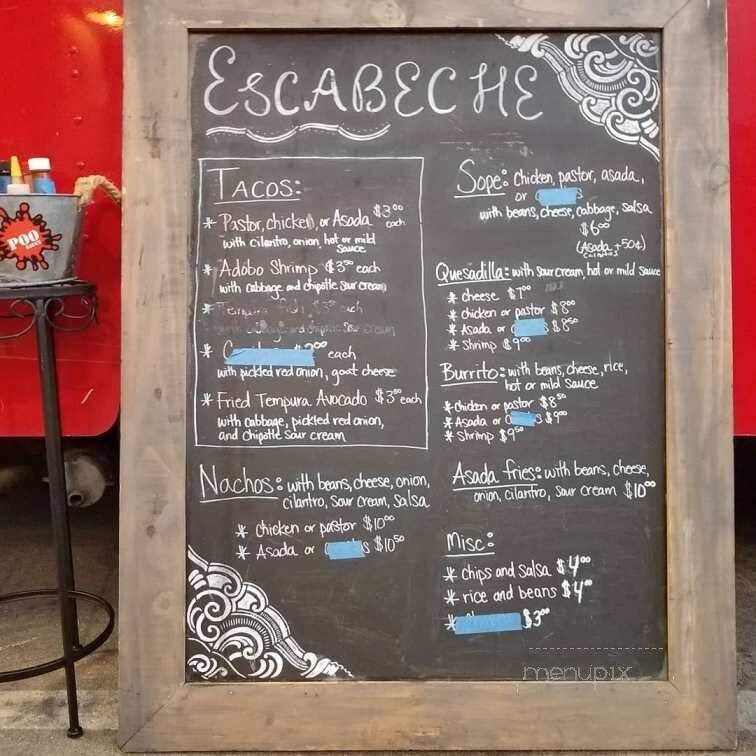 ESCABECHE
TACOS:
* Pastor, chicken, or Asada $3.00 each
with cilantro, onion, hot or mild
sauce
* Adobo Shrimp $3.50 each
with cabbage and chipotle sour cream
* Tempura Fish, $3.50 each
with cabbage and chipotle sour cream
* each
with pickled red onion, goat cheese
* Fried Tempura Avocado $3.50 each
with cabbage, pickled red onion,
and chipotle sour cream
Nachos: with beans, cheese, onion,
cilantro, sour cream, salsa
* chicken or pastor $10.00
* Asada or $10.50
Sope: Chicken, pastor, asada,
or
with beans, cheese, cabbage, salsa
$6.00
(Asada +50¢)
Quesadilla: with sour cream, hot or mild sauce
* cheese $7.00
* chicken or pastor $8.00
* Asada or $8.50
* Shrimp $9.00
Burrito: with beans, cheese, rice,
hot or mild sauce
* chicken or pastor $8.50
* Asada or $9.00
* Shrimp $9.50
Asada fries: with beans, cheese,
onion, cilantro, sour cream $10.00
Misc:
* chips and salsa $4.00
* rice and beans $4.00
* $3.00
POO
menupix